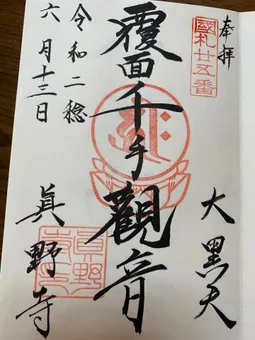 奉拝
國札廿五番
大黒天
覆面千手觀音
令和二稔
六月十三日
眞野寺
眞野寺